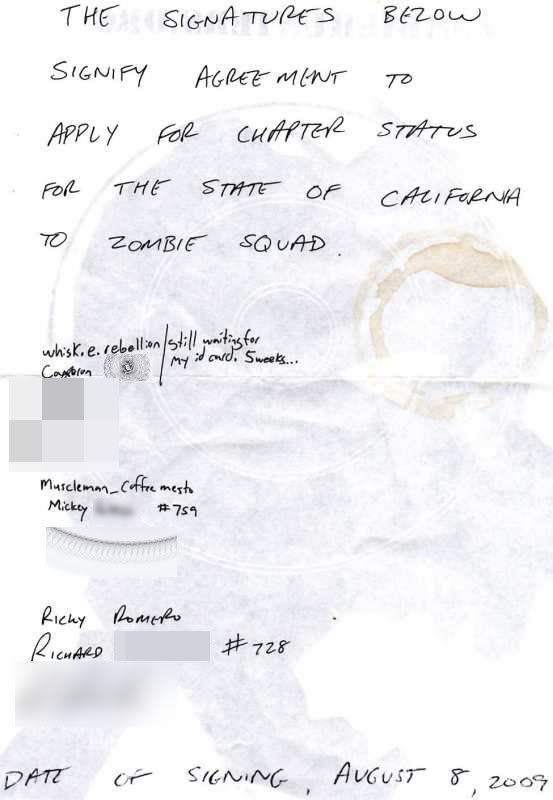 THE SIGNATURES BELOW
SIGNIFY AGREEMENT TO
APPLY FOR CHAPTER STATUS
FOR THE STATE OF CALIFORNIA
TO ZOMBIE SQUAD.
whisk.e.rebellion / still waiting for
my id card. 5 weeks...
Muscleman_Coffee mesto
Mickey #759
RICKY ROMERO
RICHARD #728
DATE OF SIGNING, AUGUST 8, 2009